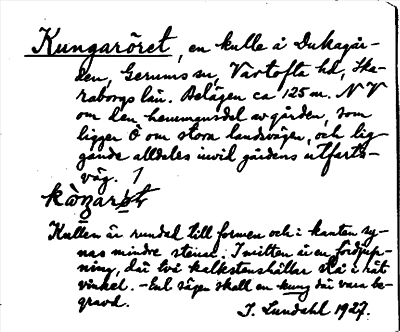 Kungaröret, en kulle å Dukagår-
den, Gerums sn, Vartofta hd, Ska-
raborgs län. Belägen ca 125 m. NV
om den hemmansdel av gården, som
ligger Ö om stora landsvägen, och lig-
gande alldeles invid gårdens utfarts-
väg. 1
Kullen är rundad till formen och i kanten sy-
nas mindre stenar. I mitten är en fördjup-
ning, där två kalkstenshällar stå i rät
vinkel. – Enl. sägen skall en kung där vara be-
gravd.
T. Lundahl 1927.